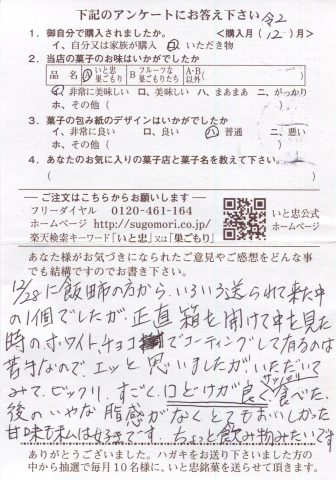 下記のアンケートにお答え下さい 令2
1. 御自分で購入されましたか。 <購入月(12)月>
イ、自分又は家族が購入 ロ、いただき物
2. 当店の菓子のお味はいかがでしたか
品名 A いと忠巣ごもり B フルーツな巣ごもりたち A・B以外
イ、非常に美味しい ロ、美味しい ハ、まあまあ ニ、がっかり
ホ、その他( )
3. 菓子の包み紙のデザインはいかがでしたか
イ、非常に良い ロ、良い ハ、普通 ニ、悪い
ホ、その他( )
4. あなたのお気に入りの菓子店と菓子名を教えて下さい。
( )
―ご注文はこちらからお願いします―
フリーダイヤル 0120-461-164
ホームページ http://sugomori.co.jp/
楽天検索キーワード「いと忠」又は「巣ごもり」
いと忠公式
ホームページ
あなた様がお気づきになられたご意見やご感想をどんな事
でも結構ですのでお書き下さい。
12/28に飯田市の方から、いろいろ送られて来た中
の1個でしたが 正直 箱を開けて中を見た
時のホワイトチョコでコーティングして有るのは
苦手なので、エッと思いましたが、いただいて
みて、ビックリ、すごく口どけが良くサッパリ食べた
後のいやな脂感がなくとてもおいしかった
甘味も私は好きです。ちょっと飲み物みたいです
ありがとうございました。ハガキをお送り下さいました方の
中から抽選で毎月10名様に、いと忠銘菓を送らせて頂きます。